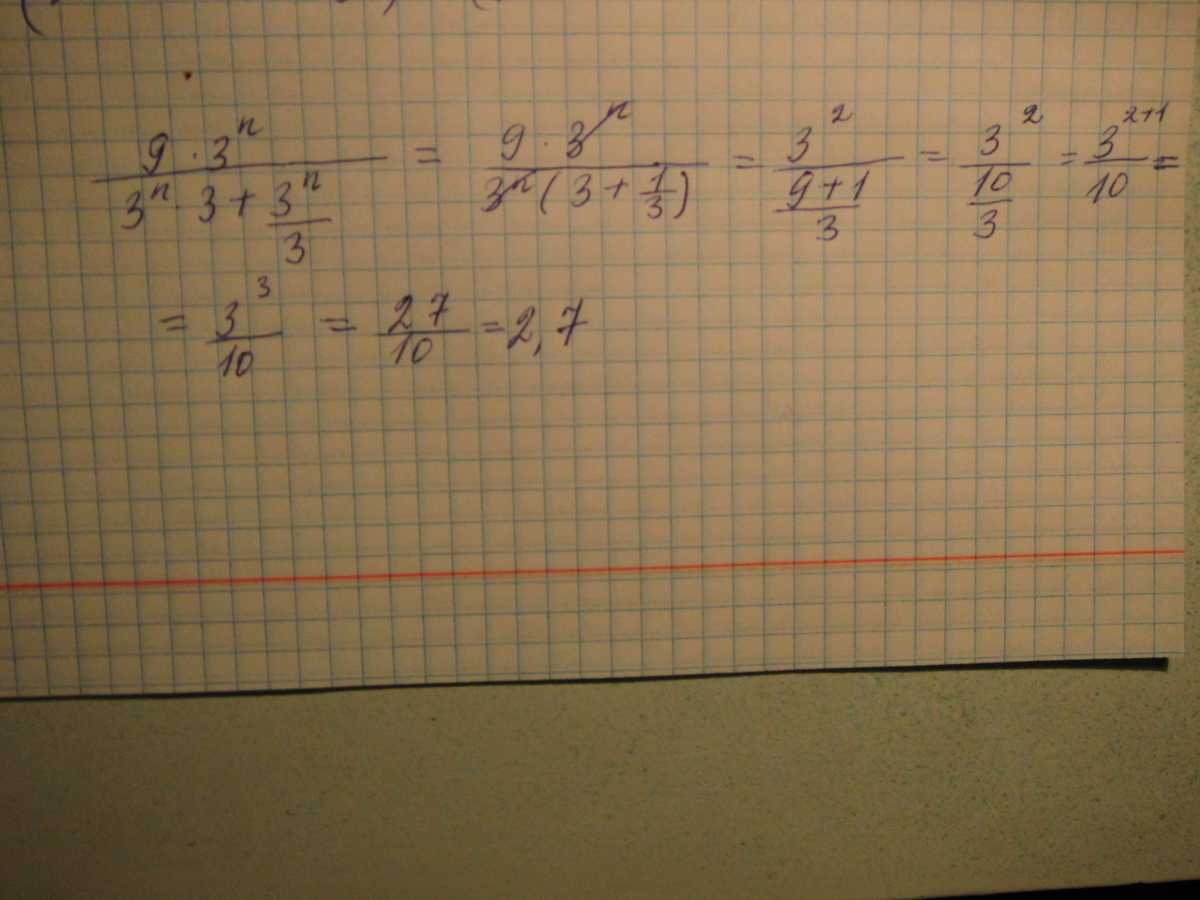 \frac{9 \cdot 3^n}{3^n \cdot 3 + \frac{3^n}{3}} = \frac{9 \cdot 3^n}{3^n (3 + \frac{1}{3})} = \frac{3^2}{\frac{9+1}{3}} = \frac{3^2}{\frac{10}{3}} = \frac{3^{2+1}}{10} =
= \frac{3^3}{10} = \frac{27}{10} = 2,7